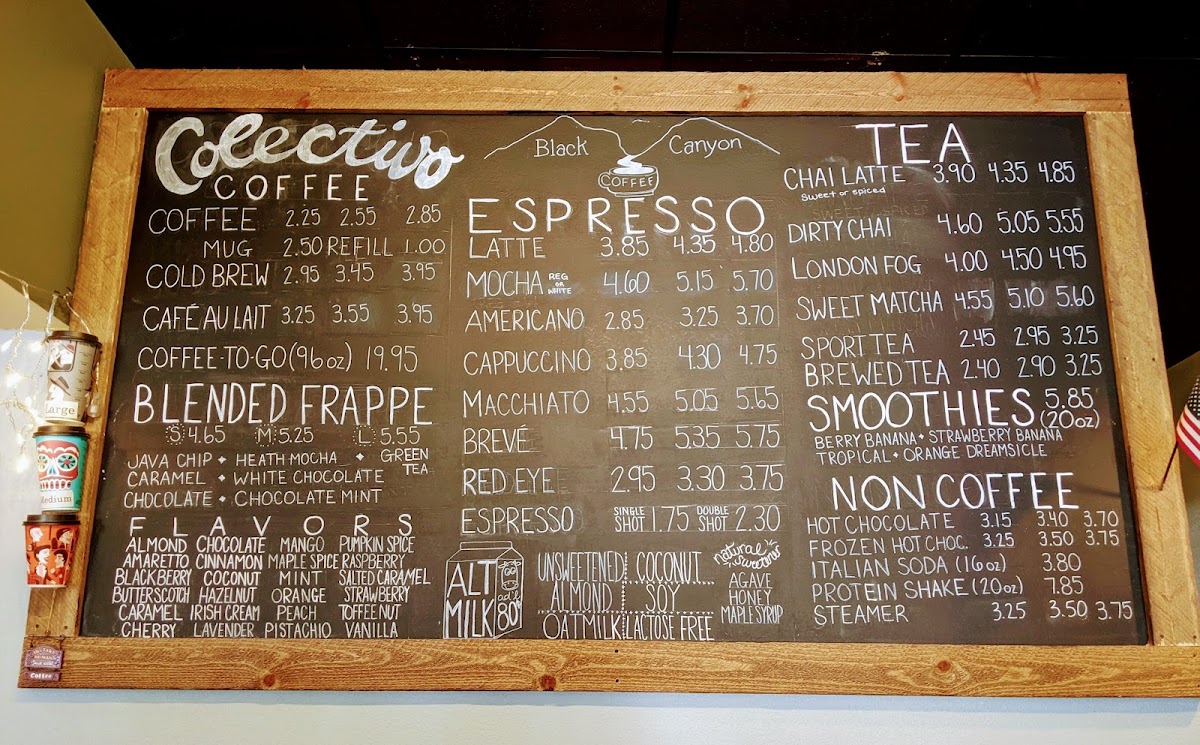 Colectivo
COFFEE
COFFEE 2.25 2.55 2.85
MUG 2.50 REFILL 1.00
COLD BREW 2.95 3.45 3.95
CAFÉ AU LAIT 3.25 3.55 3.95
COFFEE-TO-GO (96oz) 19.95
BLENDED FRAPPE
S 4.65 M 5.25 L 5.55
JAVA CHIP • HEATH MOCHA • GREEN TEA
CARAMEL • WHITE CHOCOLATE
CHOCOLATE • CHOCOLATE MINT
FLAVORS
ALMOND CHOCOLATE MANGO PUMPKIN SPICE
AMARETTO CINNAMON MAPLE SPICE RASPBERRY
BLACKBERRY COCONUT MINT SALTED CARAMEL
BUTTERSCOTCH HAZELNUT ORANGE STRAWBERRY
CARAMEL IRISH CREAM PEACH TOFFEE NUT
CHERRY LAVENDER PISTACHIO VANILLA
Black Canyon
COFFEE
ESPRESSO
LATTE 3.85 4.35 4.80
MOCHA REG OR WHITE 4.60 5.15 5.70
AMERICANO 2.85 3.25 3.70
CAPPUCCINO 3.85 4.30 4.75
MACCHIATO 4.55 5.05 5.65
BREVÉ 4.75 5.35 5.75
RED EYE 2.95 3.30 3.75
ESPRESSO SINGLE SHOT 1.75 DOUBLE SHOT 2.30
ALT MILK
add 80¢
UNSWEETENED ALMOND
COCONUT
SOY
OATMILK
LACTOSE FREE
natural sweetners
AGAVE
HONEY
MAPLE SYRUP
TEA
CHAI LATTE 3.90 4.35 4.85
sweet or spiced
DIRTY CHAI 4.60 5.05 5.55
LONDON FOG 4.00 4.50 4.95
SWEET MATCHA 4.55 5.10 5.60
SPORT TEA 2.45 2.95 3.25
BREWED TEA 2.40 2.90 3.25
SMOOTHIES 5.85 (20oz)
BERRY BANANA • STRAWBERRY BANANA
TROPICAL • ORANGE DREAMSICLE
NON COFFEE
HOT CHOCOLATE 3.15 3.40 3.70
FROZEN HOT CHOC. 3.25 3.50 3.75
ITALIAN SODA (16oz) 3.80
PROTEIN SHAKE (20oz) 7.85
STEAMER 3.25 3.50 3.75
Large
Medium
Coffee